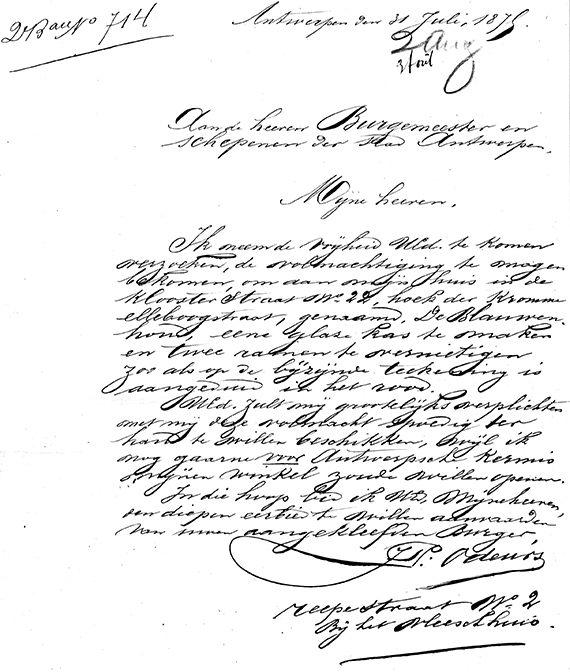 2e Bau No 714
Antwerpen den 31 Juli, 1875
2 Aug
Aan de heeren Burgemeester en
schepenen der stad Antwerpen,
Mijne heeren,
Ik neem de vryheid UEd. te komen
verzoeken, de volmachtiging te mogen
bekomen, om aan mijn huis in de
klooster Straat No 22, hoek der Kromme
ellebogstraat, genaamd, De Blauwen-
hond, eene glaze kas te maken
en twee ramen te vernietigen
zoo als op de bijzijnde teekening is
aangeduid in het rood.
UEd. zult mij grootelijks verplichten
met mij deze volmacht spoedig ter
hand te willen beschikken, wijl ik
nog gaarne voor Antwerpsch Kermis
mijnen winkel zoude willen openen.
In die hoop bid ik UEd, Mijne heeren,
den diepen eerbied te willen aanvaarden
van uwen aangekleefden Burger,
Odeurs
reepe straat No 2
Bij het vleeschhuis.